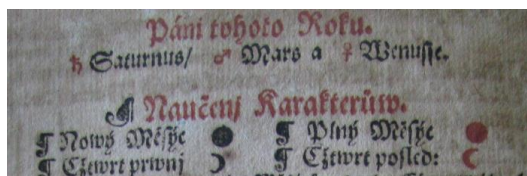 Páni tohoto Roku.
♄ Saturnus/ ♂ Mars a ♀ Wenusse.
¶ Naučenj Karakterůw.
¶ Nowý Měsýc ● ¶ Plný Měsýc ●
¶ Cžtwrt prwnj ☽ ¶ Cžtwrt posled: ☾